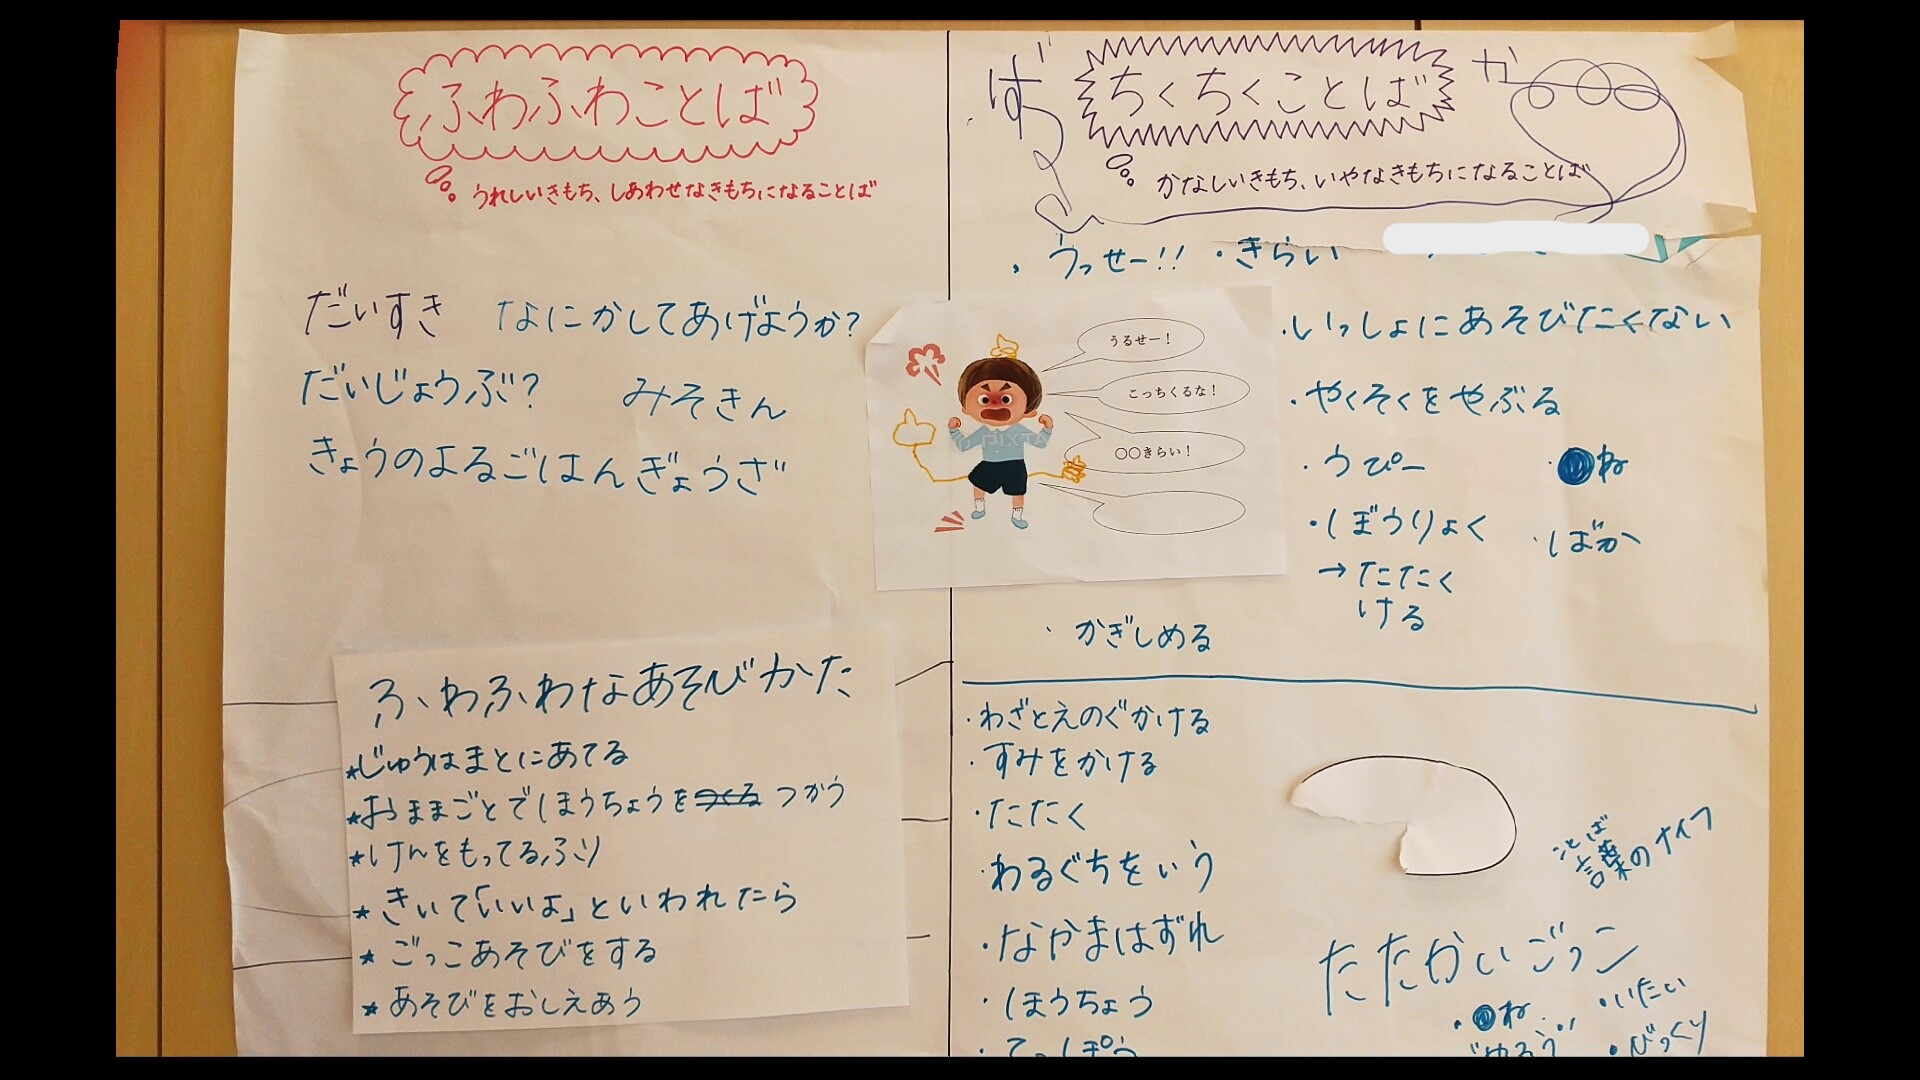 ふわふわことば
うれしいきもち、しあわせなきもちになることば
だいすき
なにかしてあげようか?
だいじょうぶ?
みそきん
きょうのよるごはんぎょうざ
ふわふわなあそびかた
★じゅうはまとにあてる
★おままごとでほうちょうをつくるつかう
★けんをもってるふり
★きいて「いいよ」といわれたら
★ごっこあそびをする
★あそびをおしえあう
ば
ちくちくことば
か
かなしいきもち、いやなきもちになることば
・うっせー!!
・きらい
うるせー!
こっちくるな!
○○きらい!
PIXTA
・いっしょにあそびたくない
・やくそくをやぶる
・うぴー
・●ね
・ぼうりょく
→たたく
ける
・ばか
・かぎしめる
・わざとえのぐかける
・すみをかける
・たたく
・わるぐちをいう
・なかまはずれ
・ほうちょう
・てっぽう
ことば
言葉のナイフ
たたかいごっこ
・●ね
・いたい
・びっくり